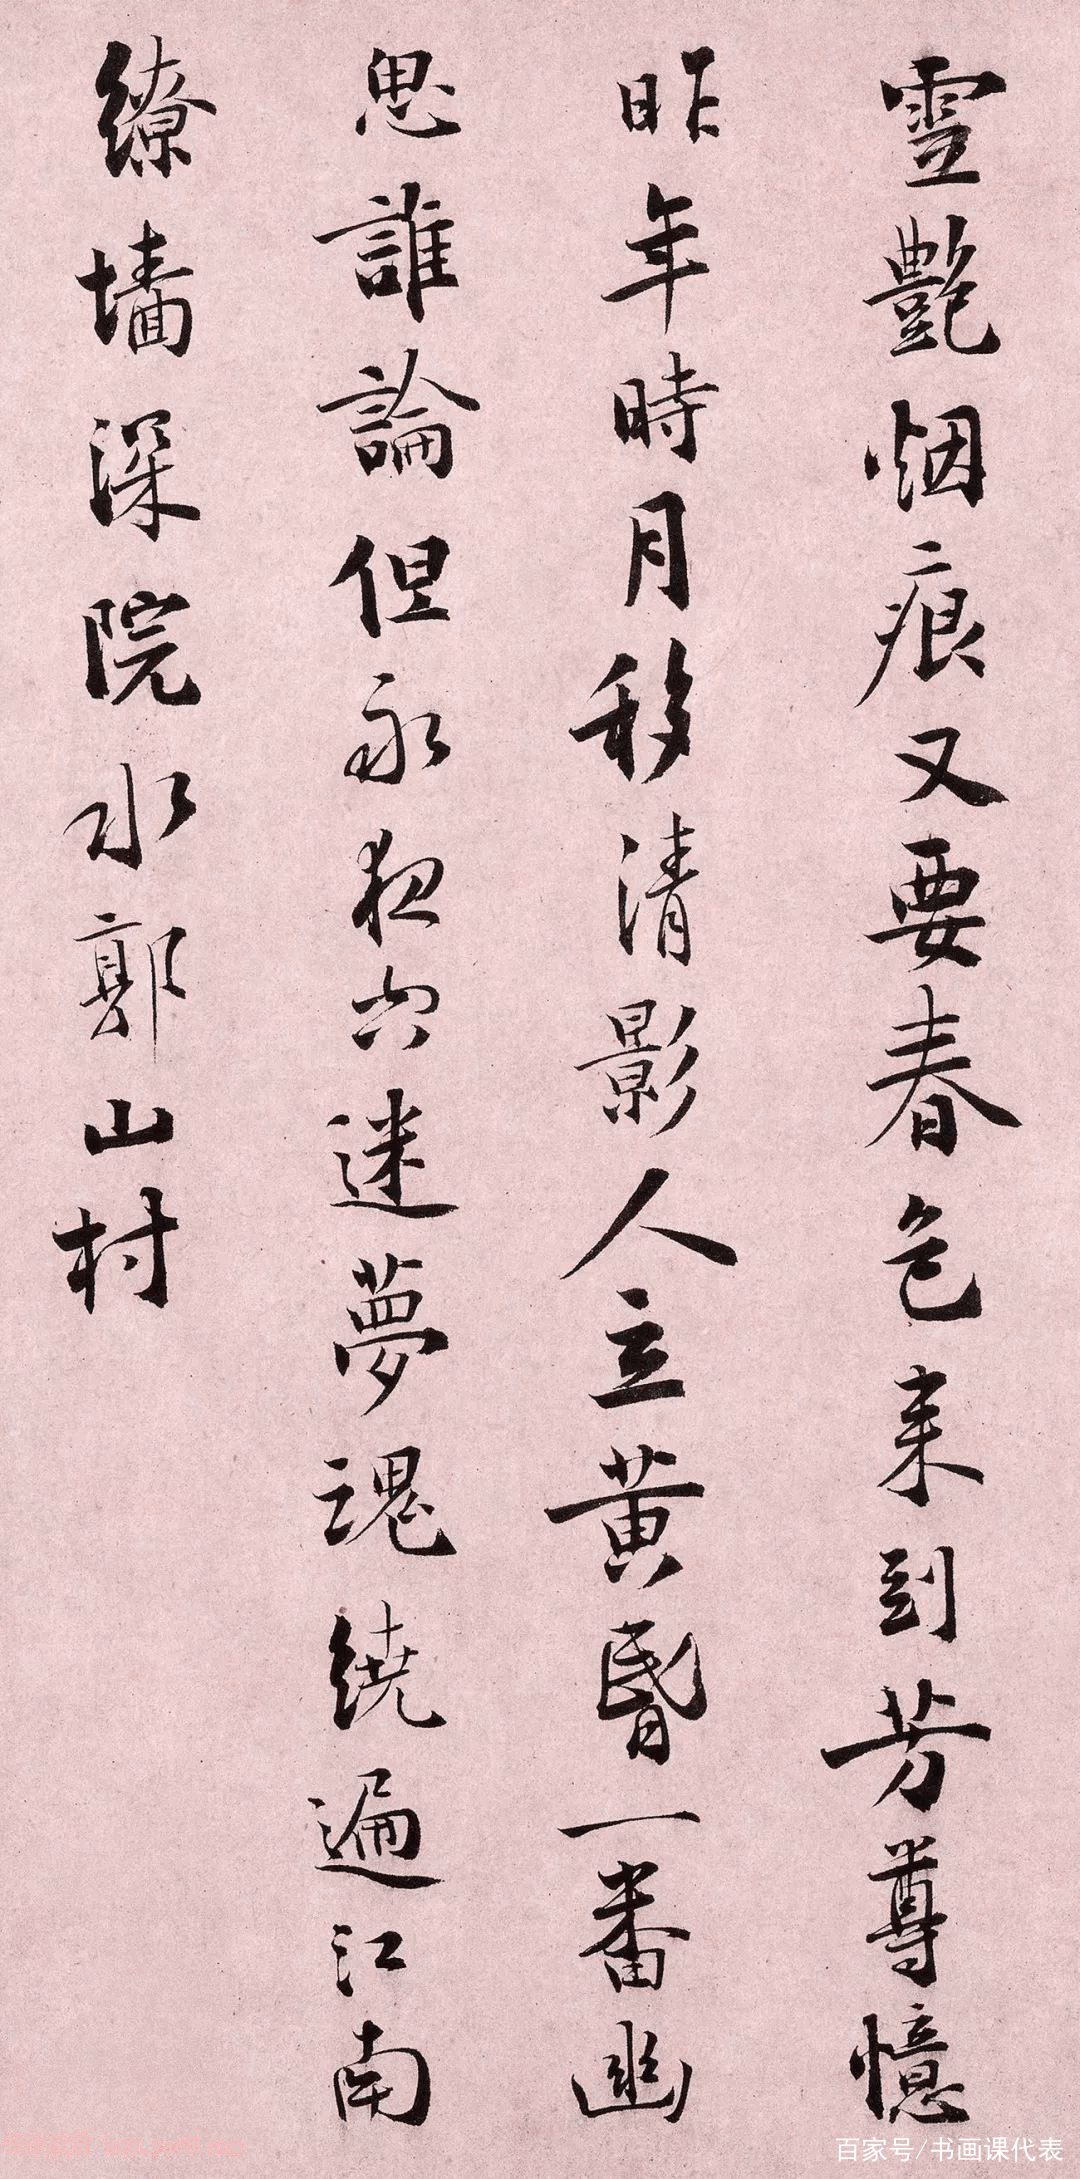 雪艷烟痕又要春色来到芳尊憶
昨年時月移清影人立黄昬一番幽
思誰論但永夜空迷夢魂繞遍江南
繚墻深院水郭山村
百家号/书画课代表